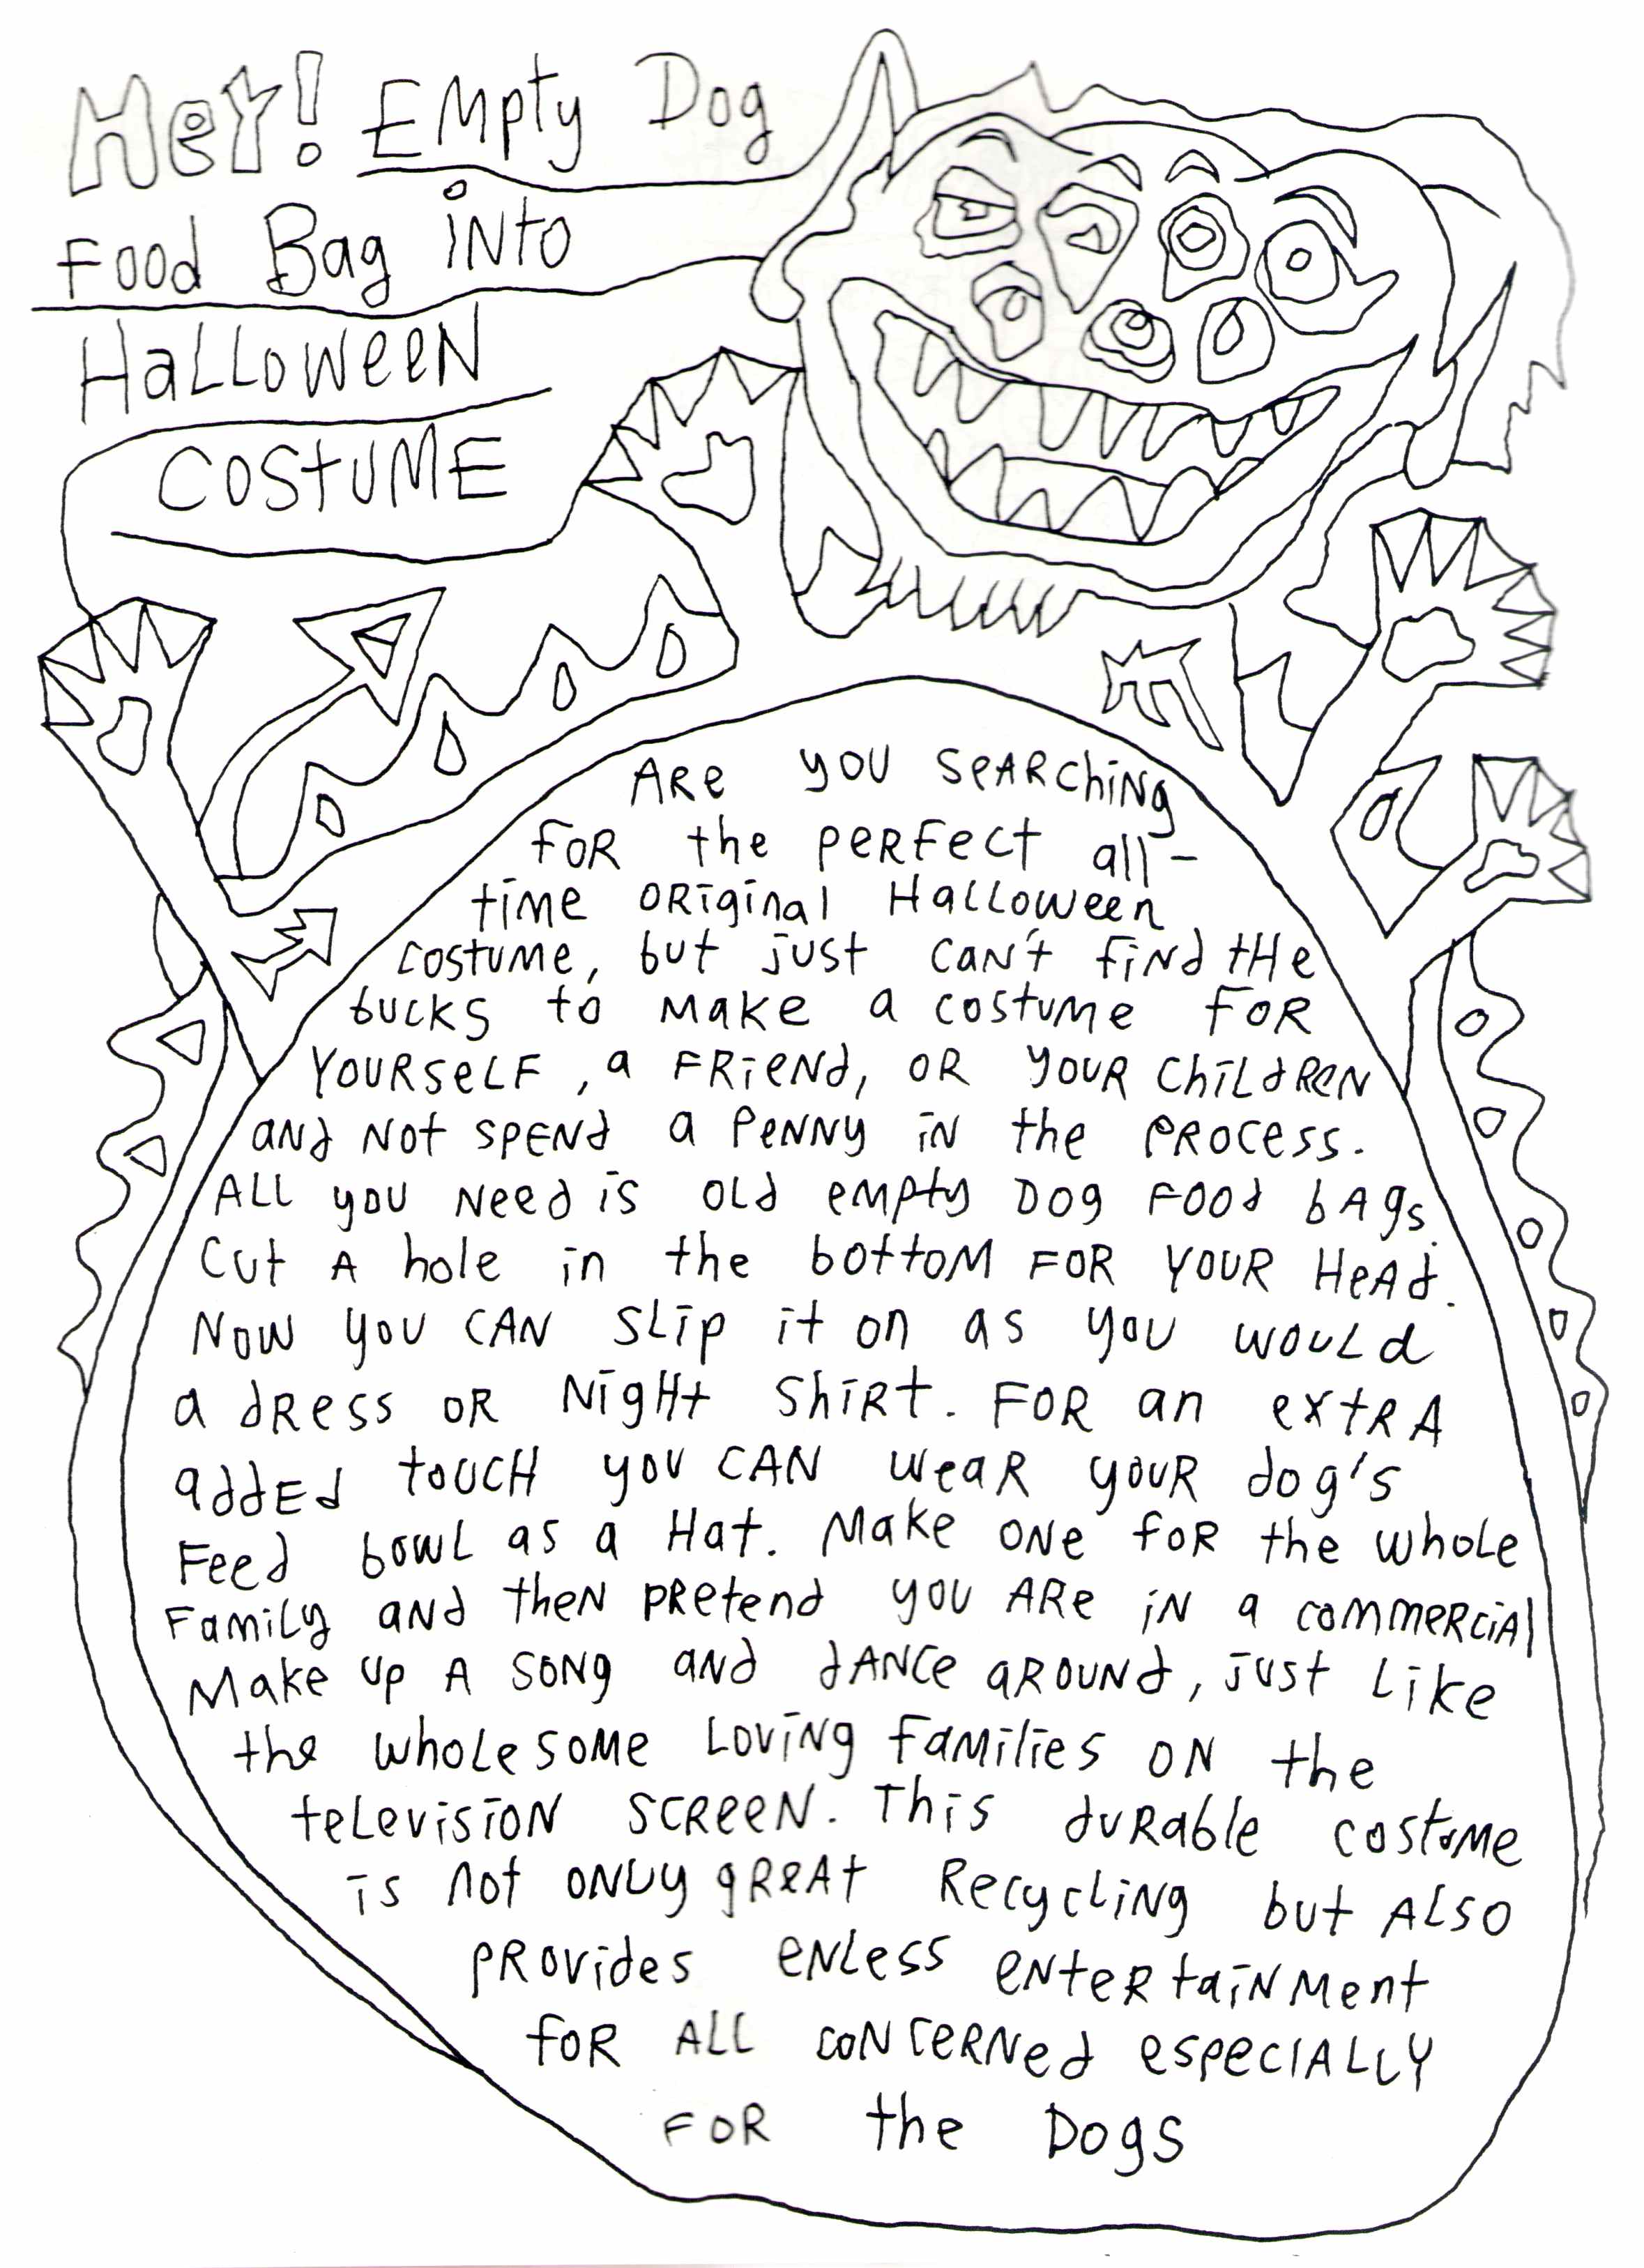 HeY! EMpty Dog
Food Bag iNto
HaLLoweeN
COStUME
ARe you SeARchiNg
foR the peRfect all-
tiMe oRiginal Halloween
costuMe, but just can't fiNd tHe
bucks to Make a costuMe foR
YouRseLF, a FRieNd, oR youR chiLdReN
aNd Not speNd a peNNy iN the pRocess.
ALL you Need is oLd eMpty Dog Food bAgs.
Cut A hole in the bottoM FOR YOUR HeAd.
Now you CAN sLip it on as you wouLd
a dRess oR NigHt shiRt. FOR an extRA
addEd toucH you CAN weaR youR dog's
Feed bowL as a Hat. Make oNe foR the whoLe
FaMiLy aNd theN pRetend you ARe iN a commeRciAl
Make up A soNg aNd dANce aRouNd, just Like
the whoLesoMe LoviNg faMilies oN the
teLevisioN scReeN. This duRable costuMe
is not oNLy gReAt RecycLiNg but ALso
pRovides eNLess eNteRtaiNMent
foR ALL coNceRNed especIALLY
FOR the Dogs